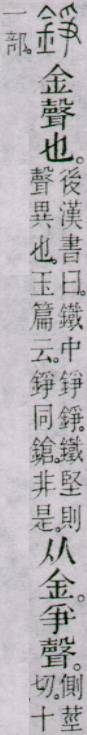 錚金聲也。後漢書曰。鐵中錚錚。鐵堅則聲異也。玉篇云。錚同鎗。非是。从金。爭聲。側莖切。十
一部。